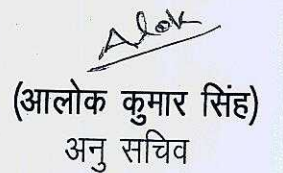 Alok
(आलोक कुमार सिंह)
अनु सचिव